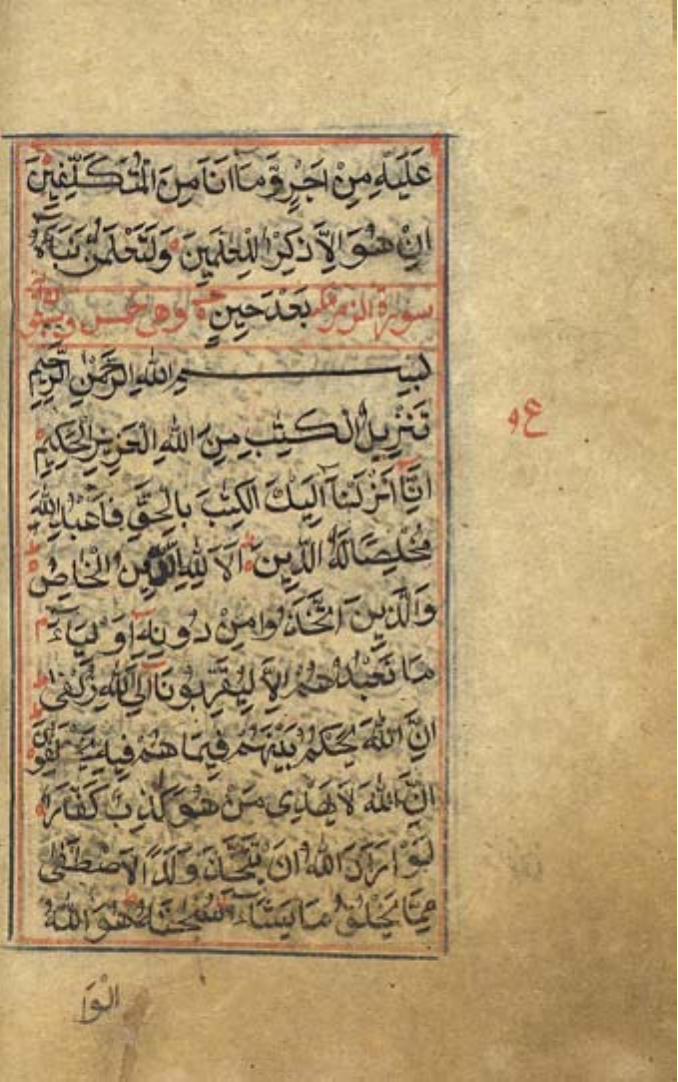 عَلَيْهِ مِنْ اَجْرٍ وَّمَا اَنَا مِنَ الْمُتَكَلِّفِيْنَ
اِنْ هُوَ اِلَّا ذِكْرٌ لِّلْعٰلَمِيْنَ وَلَتَعْلَمُنَّ نَبَاَهٗ
سورة الزمر مكية بَعْدَ حِيْنٍ وهي خمس وسبعون
بِسْمِ اللهِ الرَّحْمٰنِ الرَّحِيْمِ
تَنْزِيْلُ الْكِتٰبِ مِنَ اللهِ الْعَزِيْزِ الْحَكِيْمِ
اِنَّا اَنْزَلْنَا اِلَيْكَ الْكِتٰبَ بِالْحَقِّ فَاعْبُدِ اللهَ
مُخْلِصًا لَهُ الدِّيْنَ اَلَا لِلّٰهِ الدِّيْنُ الْخَالِصُ
وَالَّذِيْنَ اتَّخَذُوْا مِنْ دُوْنِهٖ اَوْلِيَاءَ
مَا نَعْبُدُهُمْ اِلَّا لِيُقَرِّبُوْنَا اِلَى اللهِ زُلْفٰى
اِنَّ اللهَ يَحْكُمُ بَيْنَهُمْ فِيْمَا هُمْ فِيْهِ يَخْتَلِفُوْنَ
اِنَّ اللهَ لَا يَهْدِى مَنْ هُوَ كٰذِبٌ كَفَّارٌ
لَوْ اَرَادَ اللهُ اَنْ يَتَّخِذَ وَلَدًا لَاصْطَفٰى
مِمَّا يَخْلُقُ مَا يَشَاءُ سُبْحٰنَهٗ هُوَ اللهُ
الْوَا